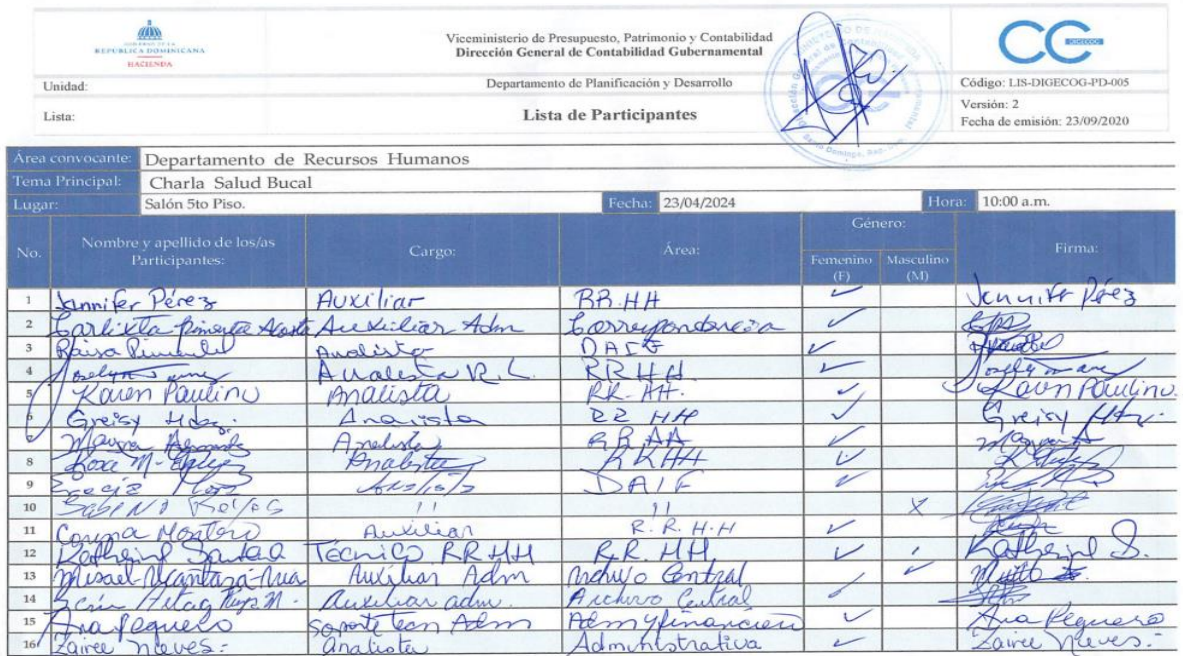 GOBIERNO DE LA
REPÚBLICA DOMINICANA
HACIENDA
Viceministerio de Presupuesto, Patrimonio y Contabilidad
Dirección General de Contabilidad Gubernamental
DIGECOG
Unidad: Departamento de Planificación y Desarrollo Código: LIS-DIGECOG-PD-005
Lista: Lista de Participantes Versión: 2
Fecha de emisión: 23/09/2020
Santo Domingo, Rep. Dom.
Área convocante: Departamento de Recursos Humanos
Tema Principal: Charla Salud Bucal
Lugar: Salón 5to Piso. Fecha: 23/04/2024 Hora: 10:00 a.m.
No. Nombre y apellido de los/as Participantes: Cargo: Área: Género: Femenino (F) Masculino (M) Firma:
1 Jennifer Pérez Auxiliar RR.HH ✓ Jennifer Pérez
2 Pimentel Acosta Auxiliar Adm Correspondencia ✓
3 Raisa Pimentel Analista DAIF ✓
4 Joselyn Analista R.L. RRHH ✓
5 Karen Paulino Analista RR.HH. ✓ Karen Paulino.
6 Greisy Hdez. Analista RR HH ✓ Greisy Hdz.
7 Analista ✓
8 Rosa M. Analista RRHH ✓
9 Analista DAIF ✓
10 Sabino Reyes 11 11 X
11 Montero Auxiliar R.R.H.H ✓
12 Katherine Santana Técnico RRHH R.R.HH ✓ Katherine S.
13 Misael Alcantara Auxiliar Adm Archivo Central ✓
14 Auxiliar adm. Archivo Central ✓
15 Ana Peguero Soporte tecn Adm Adm y financiero ✓ Ana Peguero
16 Zairee Nieves.- analista Administrativa ✓ Zairee Nieves.-